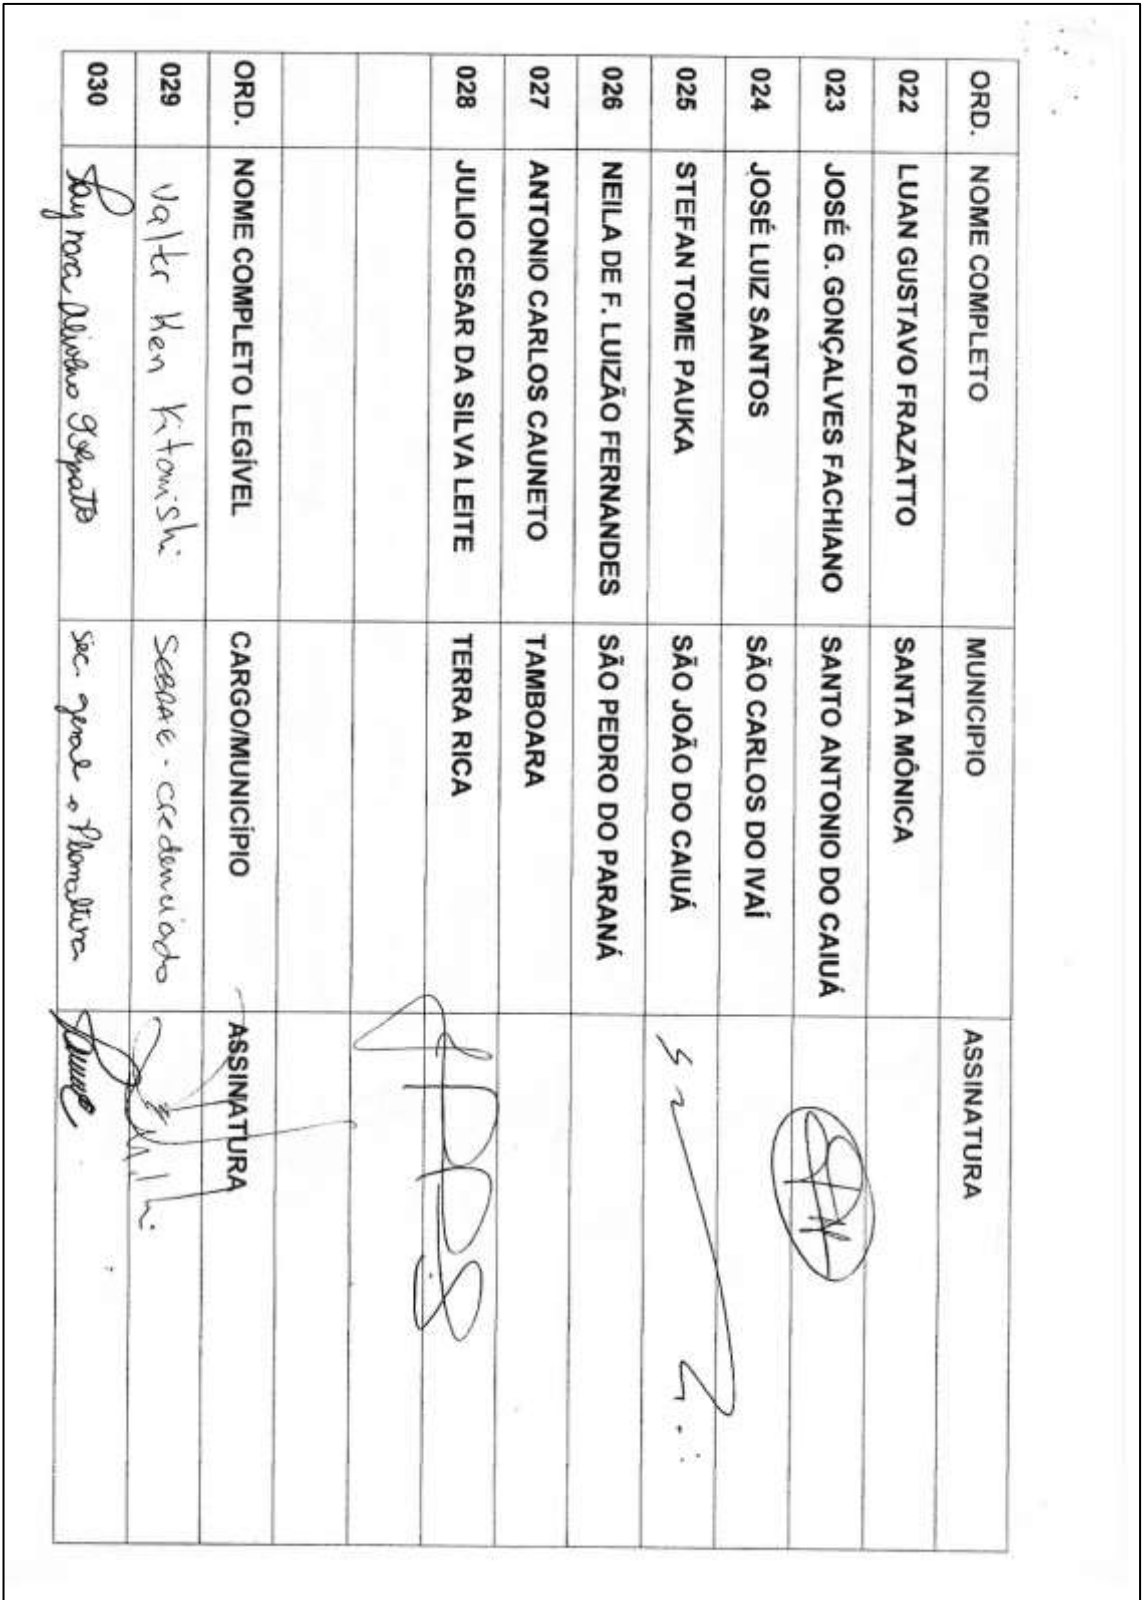 ORD. NOME COMPLETO MUNICIPIO ASSINATURA
022 LUAN GUSTAVO FRAZATTO SANTA MÔNICA
023 JOSÉ G. GONÇALVES FACHIANO SANTO ANTONIO DO CAIUÁ
024 JOSÉ LUIZ SANTOS SÃO CARLOS DO IVAÍ
025 STEFAN TOME PAUKA SÃO JOÃO DO CAIUÁ
026 NEILA DE F. LUIZÃO FERNANDES SÃO PEDRO DO PARANÁ
027 ANTONIO CARLOS CAUNETO TAMBOARA
028 JULIO CESAR DA SILVA LEITE TERRA RICA
ORD. NOME COMPLETO LEGÍVEL CARGO/MUNICÍPIO ASSINATURA
029 Valter Ken Kitanishi SEBRAE - credenciado
030 sec. geral